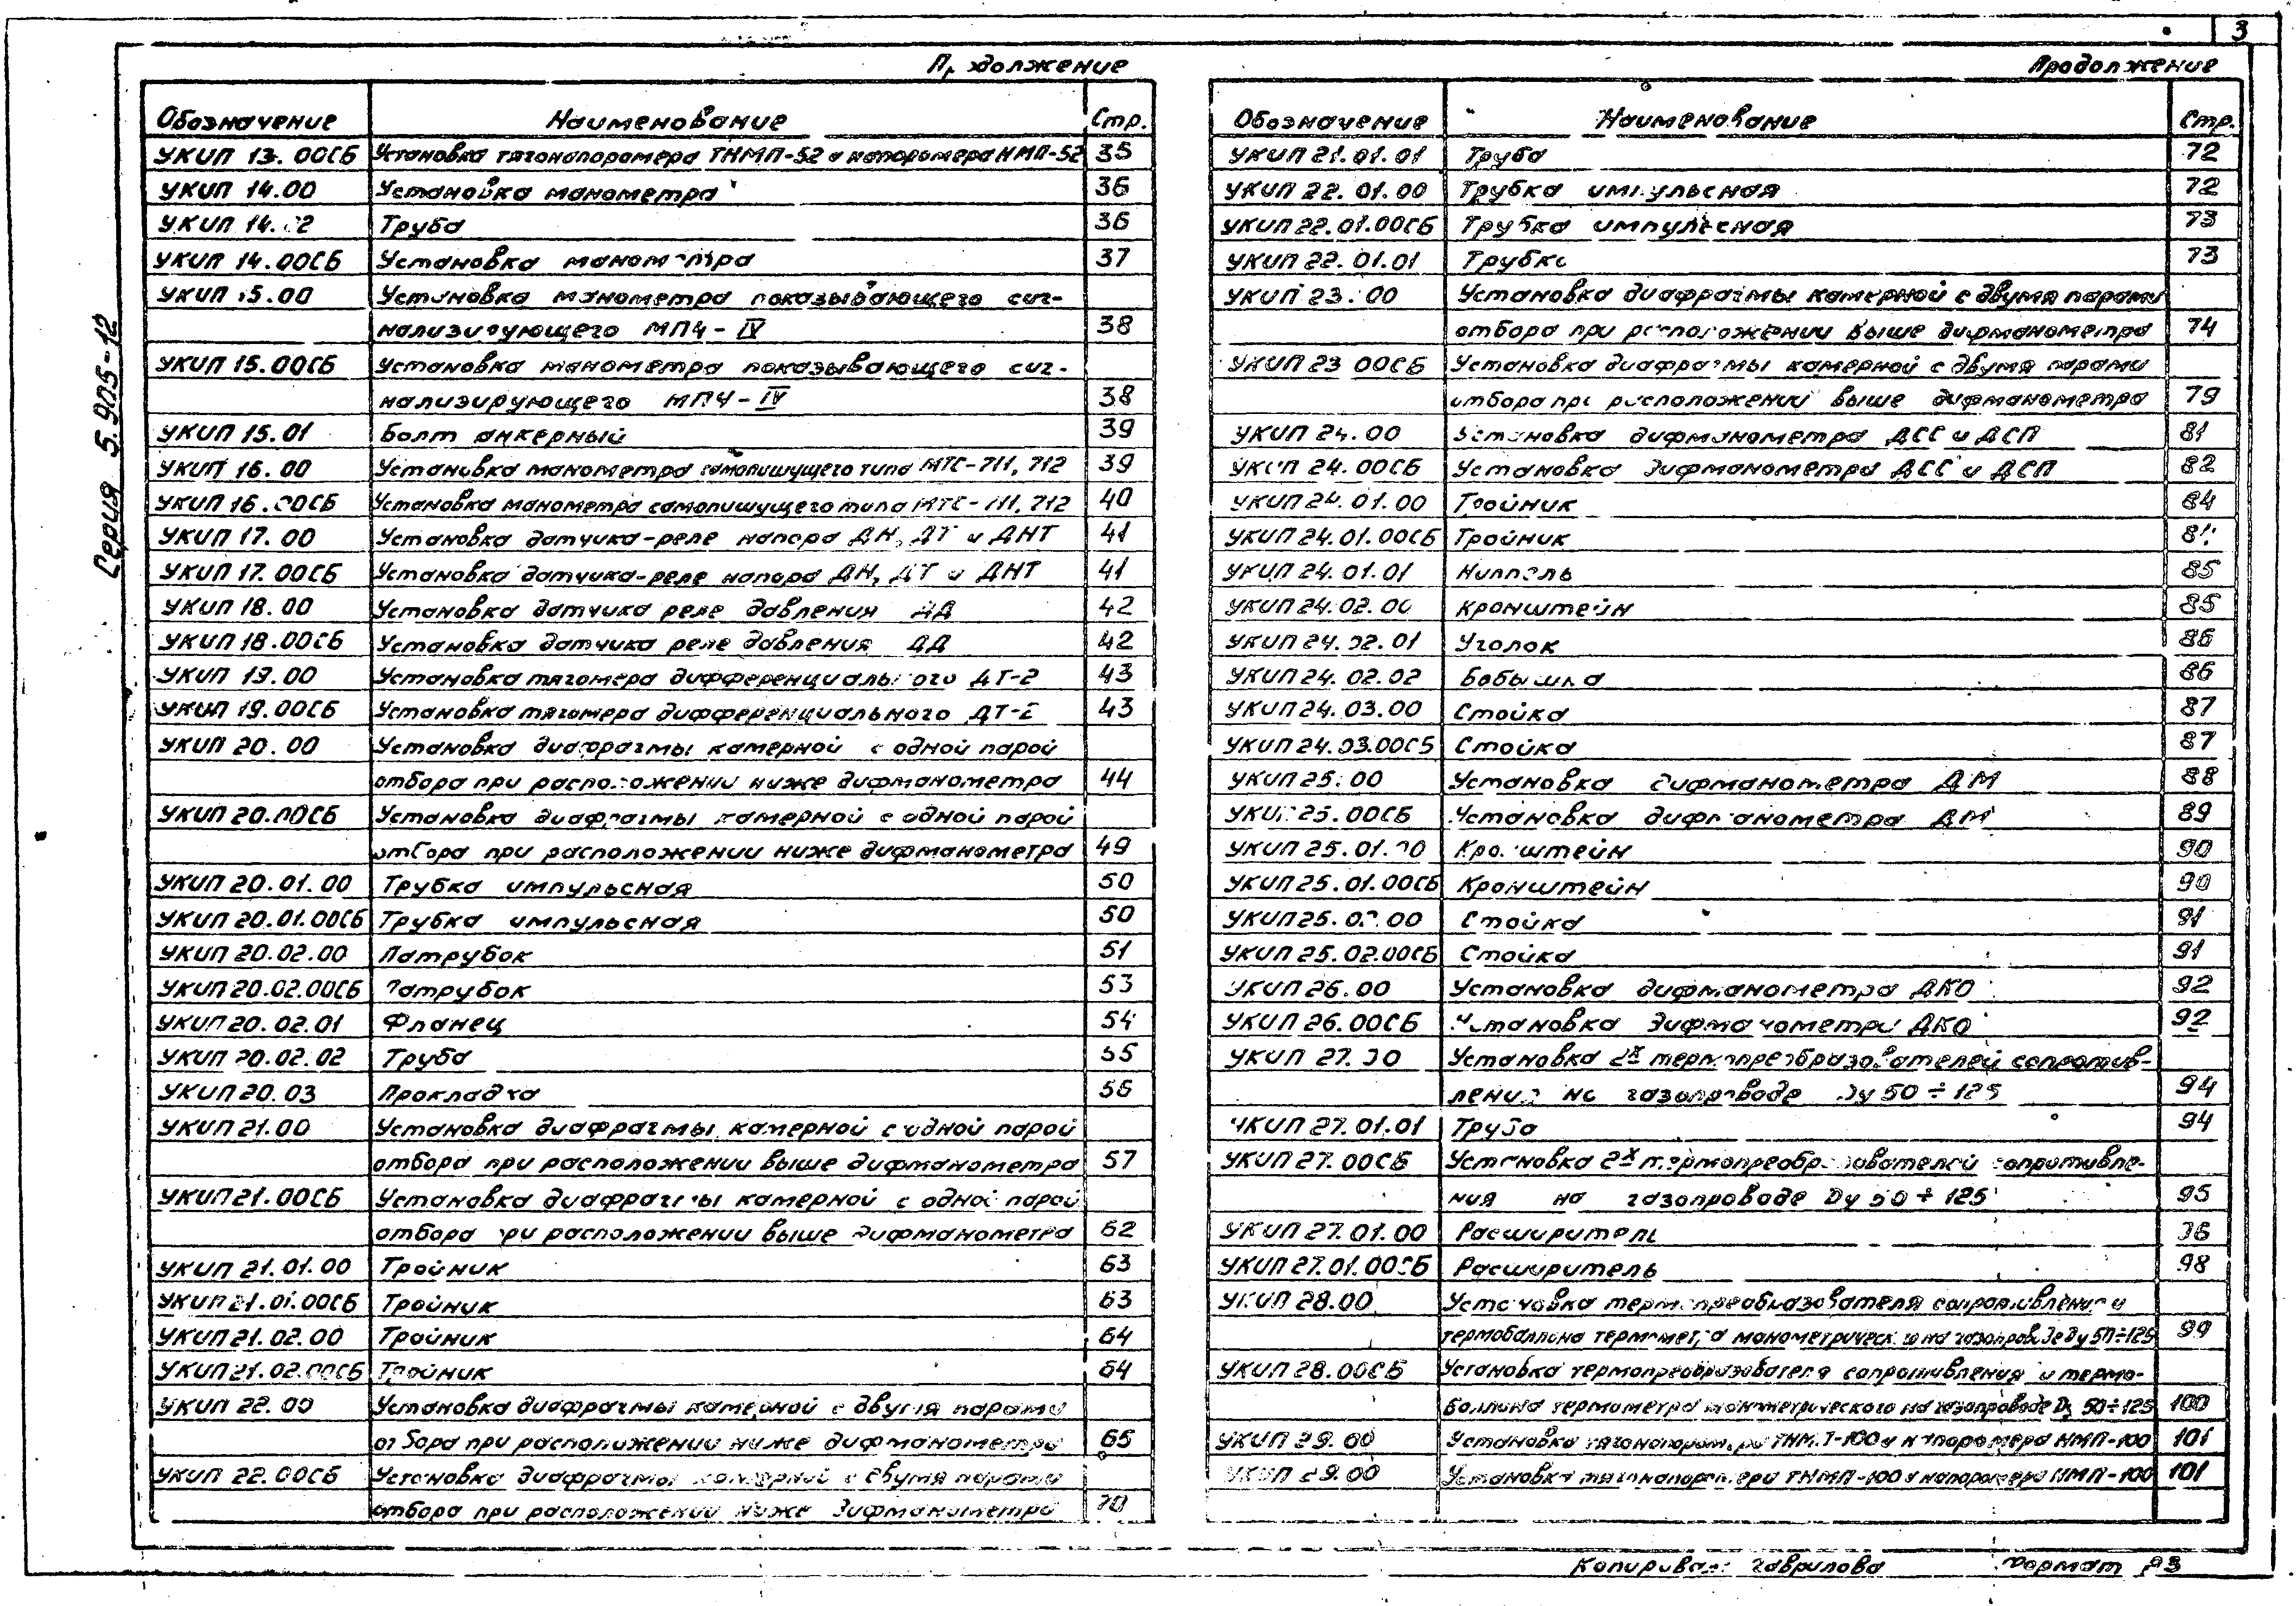 3
Серия 5.905-12
Продолжение
Обозначение Наименование Стр.
УКИП 13.00СБ Установка тягонапоромера ТНМП-52 и напоромера НМП-52 35
УКИП 14.00 Установка манометра 36
УКИП 14.02 Труба 36
УКИП 14.00СБ Установка манометра 37
УКИП 15.00 Установка манометра показывающего сиг-
нализирующего МП4-IV 38
УКИП 15.00СБ Установка манометра показывающего сиг-
нализирующего МП4-IV 38
УКИП 15.01 Болт анкерный 39
УКИП 16.00 Установка манометра самопишущего типа МТС-711, 712 39
УКИП 16.00СБ Установка манометра самопишущего типа МТС-711, 712 40
УКИП 17.00 Установка датчика-реле напора ДН, ДТ и ДНТ 41
УКИП 17.00СБ Установка датчика-реле напора ДН, ДТ и ДНТ 41
УКИП 18.00 Установка датчика реле давления ДД 42
УКИП 18.00СБ Установка датчика реле давления ДД 42
УКИП 19.00 Установка тягомера дифференциального ДТ-2 43
УКИП 19.00СБ Установка тягомера дифференциального ДТ-2 43
УКИП 20.00 Установка диафрагмы камерной с одной парой
отбора при расположении ниже дифманометра 44
УКИП 20.00СБ Установка диафрагмы камерной с одной парой
отбора при расположении ниже дифманометра 49
УКИП 20.01.00 Трубка импульсная 50
УКИП 20.01.00СБ Трубка импульсная 50
УКИП 20.02.00 Патрубок 51
УКИП 20.02.00СБ Патрубок 53
УКИП 20.02.01 Фланец 54
УКИП 20.02.02 Труба 55
УКИП 20.03 Прокладка 56
УКИП 21.00 Установка диафрагмы камерной с одной парой
отбора при расположении выше дифманометра 57
УКИП 21.00СБ Установка диафрагмы камерной с одной парой
отбора при расположении выше дифманометра 62
УКИП 21.01.00 Тройник 63
УКИП 21.01.00СБ Тройник 63
УКИП 21.02.00 Тройник 64
УКИП 21.02.00СБ Тройник 64
УКИП 22.00 Установка диафрагмы камерной с двумя парами
отбора при расположении ниже дифманометра 65
УКИП 22.00СБ Установка диафрагмы камерной с двумя парами
отбора при расположении ниже дифманометра 70
Продолжение
Обозначение Наименование Стр.
УКИП 21.01.01 Труба 72
УКИП 22.01.00 Трубка импульсная 72
УКИП 22.01.00СБ Трубка импульсная 73
УКИП 22.01.01 Трубка 73
УКИП 23.00 Установка диафрагмы камерной с двумя парами
отбора при расположении выше дифманометра 74
УКИП 23.00СБ Установка диафрагмы камерной с двумя парами
отбора при расположении выше дифманометра 79
УКИП 24.00 Установка дифманометра ДСС и ДСП 81
УКИП 24.00СБ Установка дифманометра ДСС и ДСП 82
УКИП 24.01.00 Тройник 84
УКИП 24.01.00СБ Тройник
УКИП 24.01.01 Ниппель 85
УКИП 24.02.00 Кронштейн 85
УКИП 24.02.01 Уголок 86
УКИП 24.02.02 Бобышка 86
УКИП 24.03.00 Стойка 87
УКИП 24.03.00СБ Стойка 87
УКИП 25.00 Установка дифманометра ДМ 88
УКИП 25.00СБ Установка дифманометра ДМ 89
УКИП 25.01.00 Кронштейн 90
УКИП 25.01.00СБ Кронштейн 90
УКИП 25.02.00 Стойка 91
УКИП 25.02.00СБ Стойка 91
УКИП 26.00 Установка дифманометра ДКО 92
УКИП 26.00СБ Установка дифманометра ДКО 92
УКИП 27.00 Установка 2х термопреобразователей сопротив-
ления на газопроводе Dу 50÷125 94
УКИП 27.01.01 Труба 94
УКИП 27.00СБ Установка 2х термопреобразователей сопротивле-
ния на газопроводе Dу 50÷125 95
УКИП 27.01.00 Расширитель 96
УКИП 27.01.00СБ Расширитель 98
УКИП 28.00 Установка термопреобразователя сопротивления и
термобаллона термометра манометрического на газопроводе Dу 50÷125 99
УКИП 28.00СБ Установка термопреобразователя сопротивления и термо-
баллона термометра манометрического на газопроводе Dу 50÷125 100
УКИП 29.00 Установка тягонапоромера ТНМП-100 и напоромера НМП-100 101
УКИП 29.00 Установка тягонапоромера ТНМП-100 и напоромера НМП-100 101
Копировал: Гаврилова Формат А3